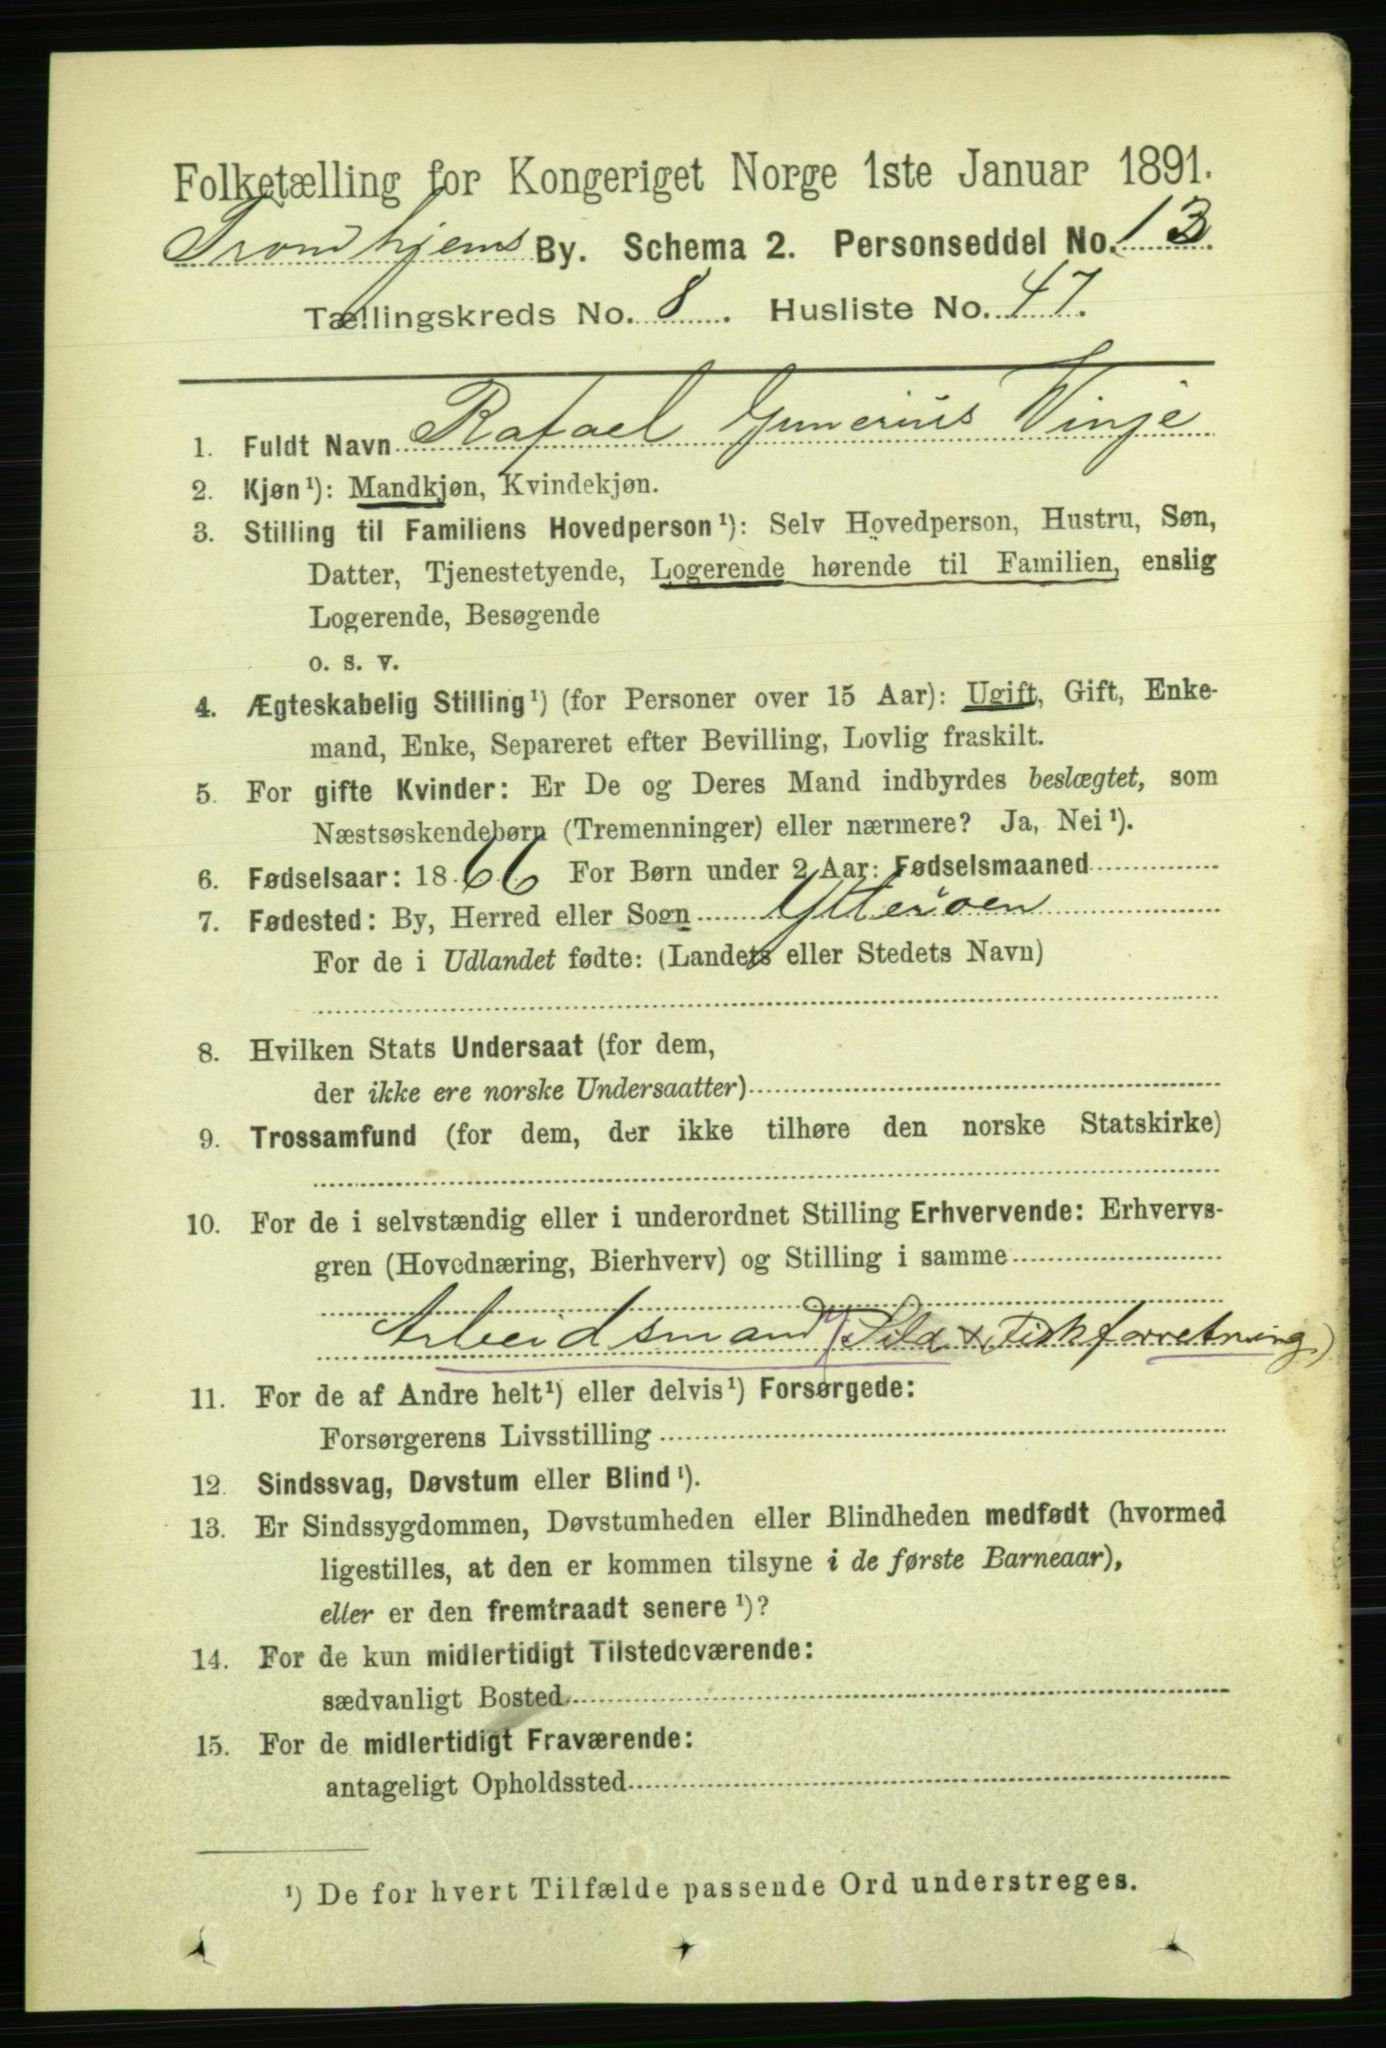 Folketælling for Kongeriget Norge 1ste Januar 1891.
Trondhjems By. Schema 2. Personseddel No. 13.
Tællingskreds No. 8. Husliste No. 47.
1. Fuldt Navn Rafael Gunerius Vinje
2. Kjøn¹): Mandkjøn, Kvindekjøn.
3. Stilling til Familiens Hovedperson¹): Selv Hovedperson, Hustru, Søn,
Datter, Tjenestetyende, Logerende hørende til Familien, enslig
Logerende, Besøgende
o. s. v.
4. Ægteskabelig Stilling¹) (for Personer over 15 Aar): Ugift, Gift, Enke-
mand, Enke, Separeret efter Bevilling, Lovlig fraskilt.
5. For gifte Kvinder: Er De og Deres Mand indbyrdes beslægtet, som
Næstsøskendebørn (Tremenninger) eller nærmere? Ja, Nei¹).
6. Fødselsaar: 1866 For Børn under 2 Aar: Fødselsmaaned
7. Fødested: By, Herred eller Sogn Ytterøen
For de i Udlandet fødte: (Landets eller Stedets Navn)
8. Hvilken Stats Undersaat (for dem,
der ikke ere norske Undersaatter)
9. Trossamfund (for dem, der ikke tilhøre den norske Statskirke)
10. For de i selvstændig eller i underordnet Stilling Erhvervende: Erhvervs-
gren (Hovednæring, Bierhverv) og Stilling i samme
Arbeidsmand (Sild & Fiskforretning)
11. For de af Andre helt¹) eller delvis¹) Forsørgede:
Forsørgerens Livsstilling
12. Sindssvag, Døvstum eller Blind¹).
13. Er Sindssygdommen, Døvstumheden eller Blindheden medfødt (hvormed
ligestilles, at den er kommen tilsyne i de første Barneaar),
eller er den fremtraadt senere¹)?
14. For de kun midlertidigt Tilstedeværende:
sædvanligt Bosted
15. For de midlertidigt Fraværende:
antageligt Opholdssted
¹) De for hvert Tilfælde passende Ord understreges.